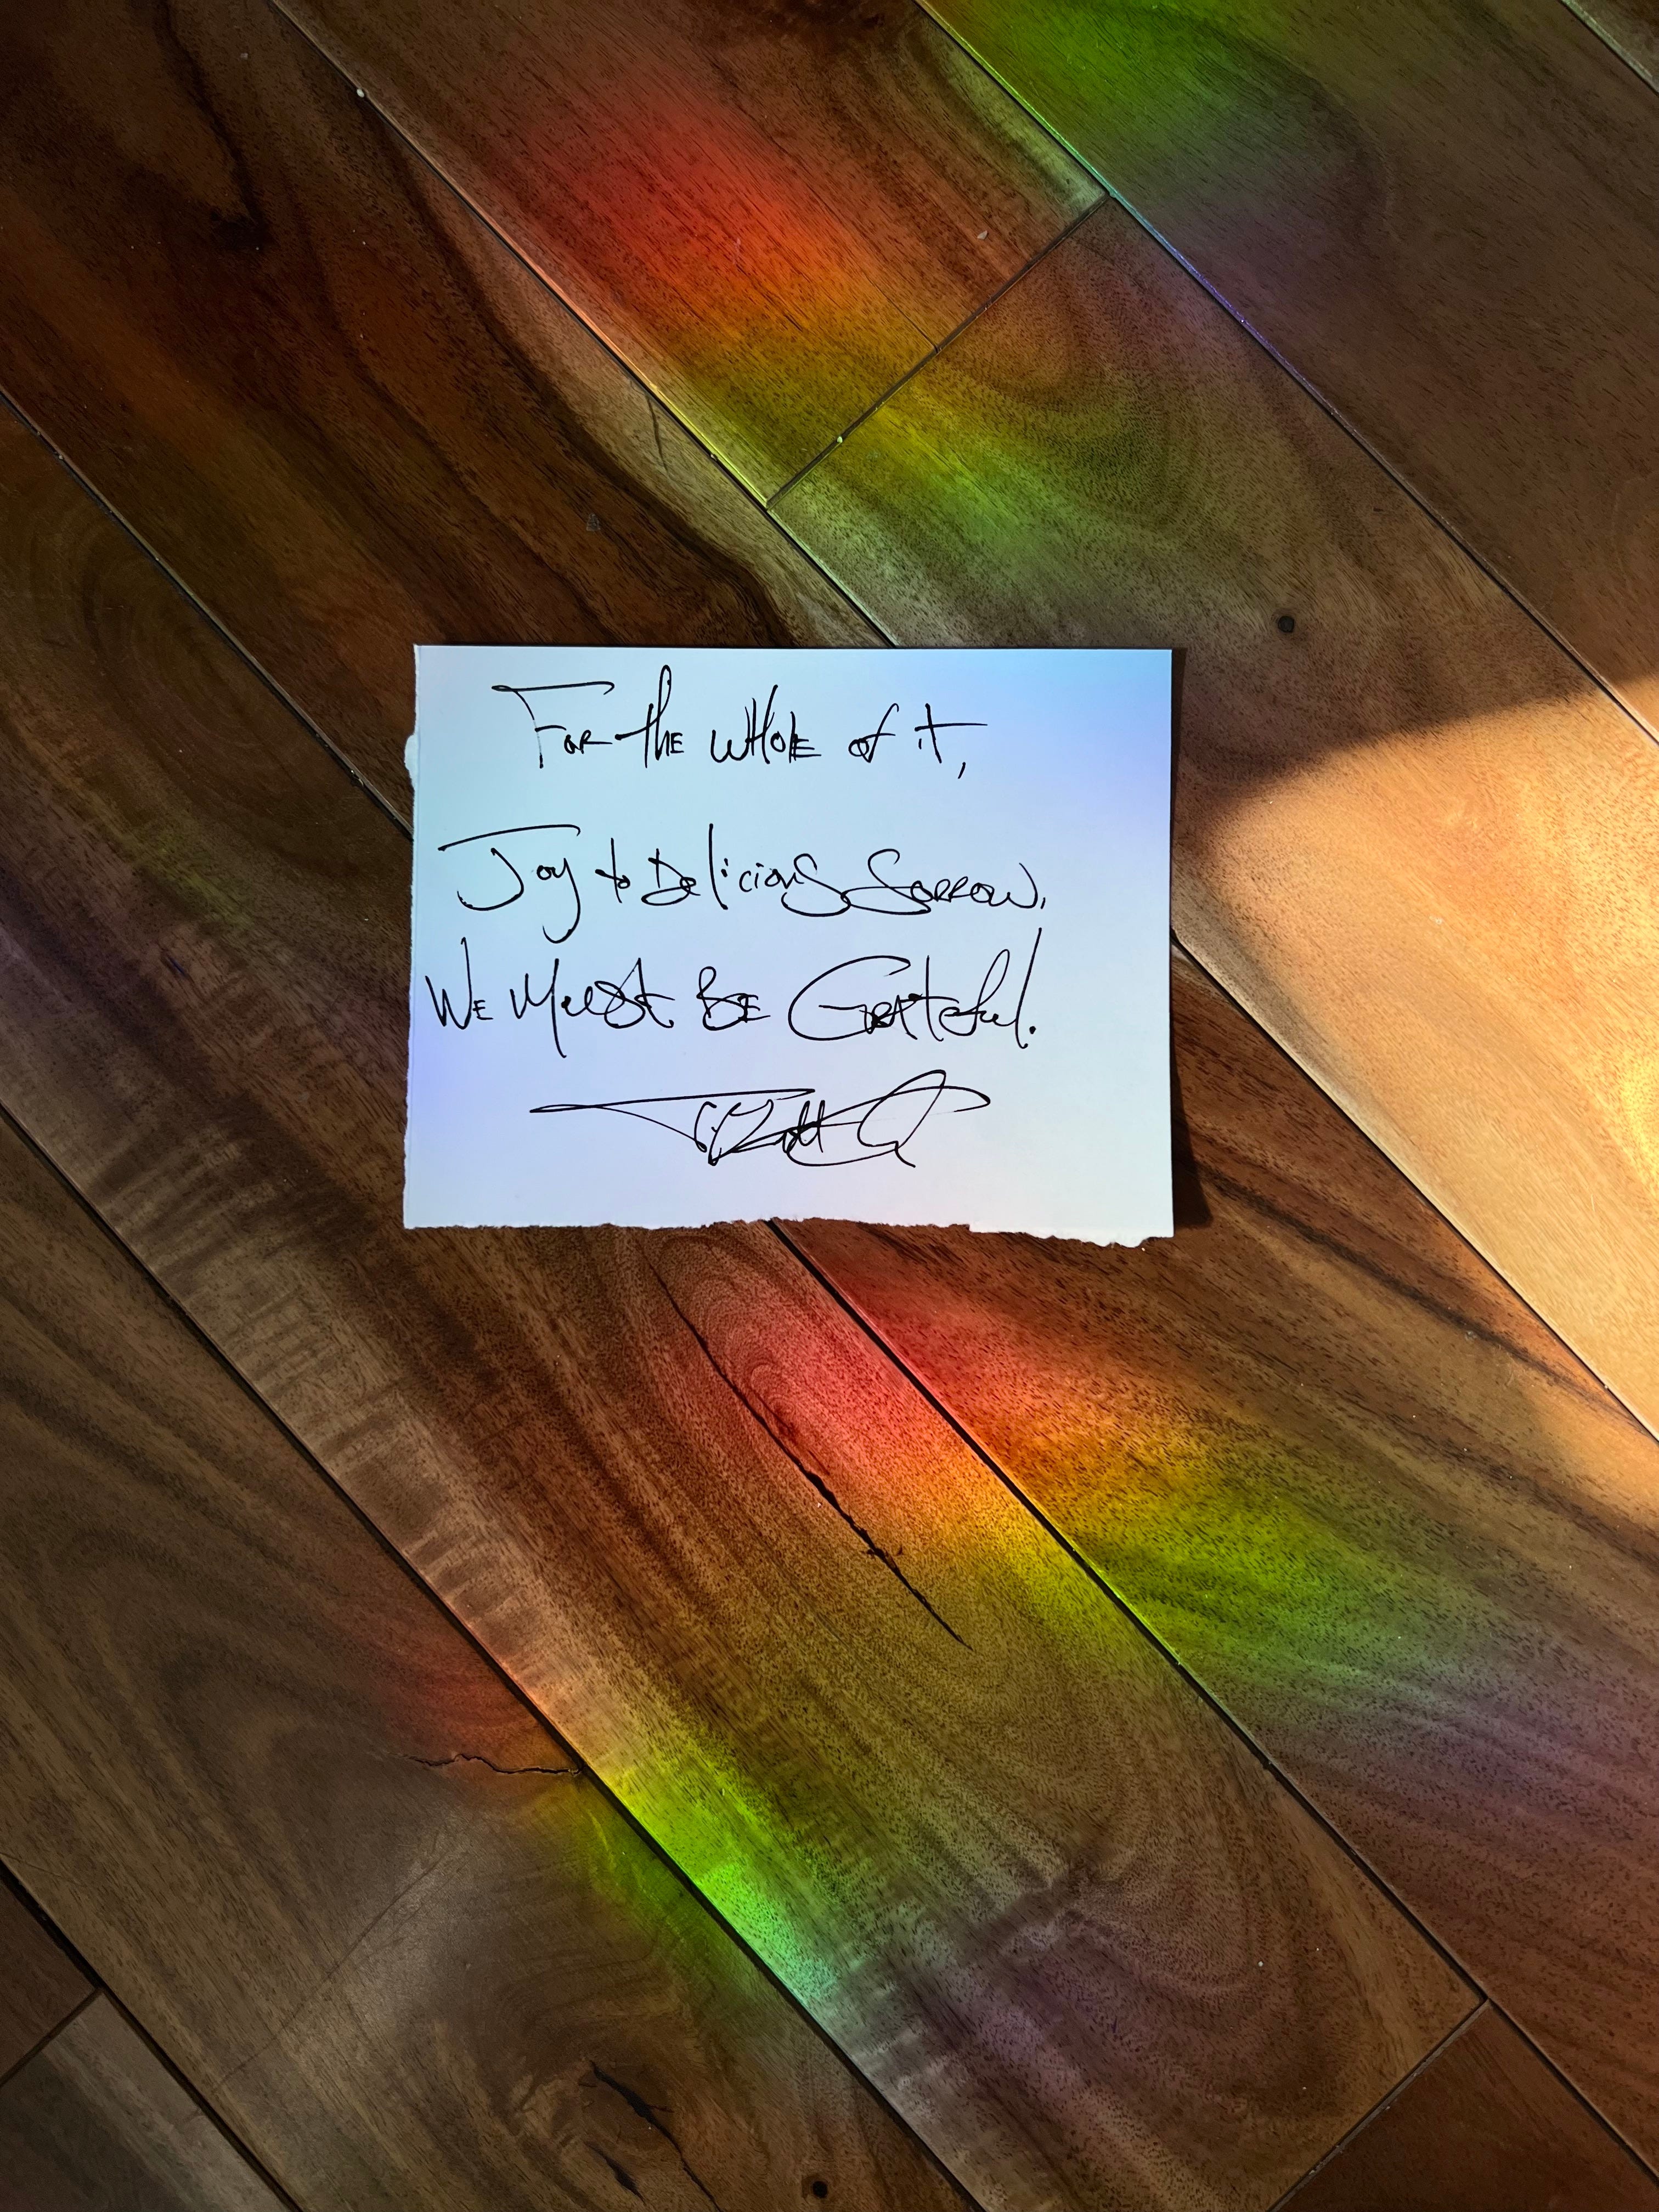 For the whole of it,
Joy to Delicious Sorrow,
We Must Be Grateful.